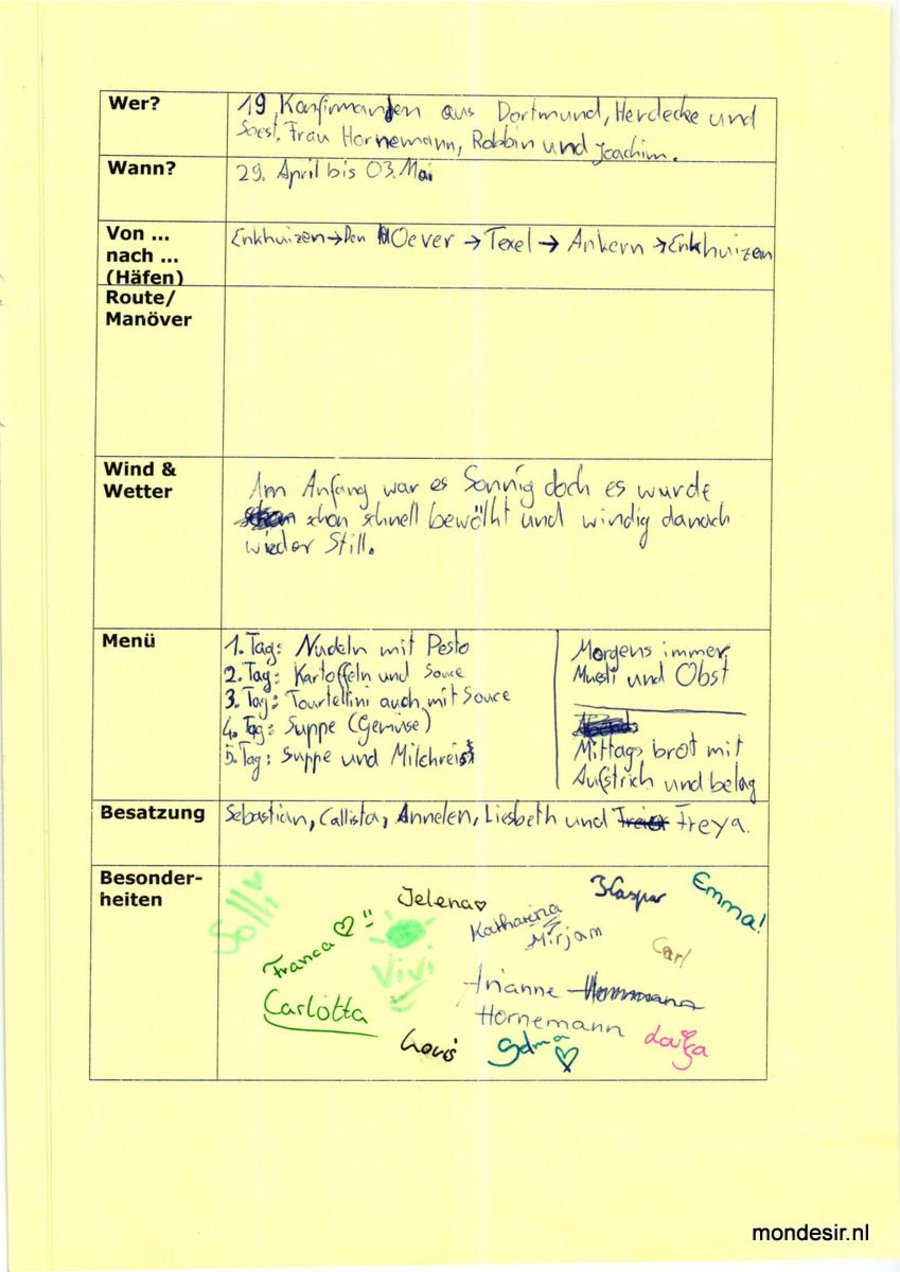 Wer?
19 Konfirmanden aus Dortmund, Herdecke und
Soest, Frau Hornemann, Robbin und Joachim.
Wann?
29. April bis 03. Mai
Von ...
nach ...
(Häfen)
Enkhuizen → Den Oever → Texel → Ankern → Enkhuizen
Route/
Manöver
Wind &
Wetter
Am Anfang war es Sonnig doch es wurde
schon schnell bewölkt und windig danach
wieder Still.
Menü
1. Tag: Nudeln mit Pesto
2. Tag: Kartoffeln und Souce
3. Tag: Tourtellini auch mit Souce
4. Tag: Suppe (Gemüse)
5. Tag: Suppe und Milchreis
Morgens immer
Muesli und Obst
Mittags brot mit
Aufstrich und belag
Besatzung
Sebastian, Callista, Annelen, Liesbeth und Freya.
Besonder-
heiten
Solli
Jelena
Kaspar
Emma!
Franca
Katharina
Mirjam
Carl
Vivi
Arianne
Hornemann
Carlotta
Louis
Selma
Louisa
mondesir.nl